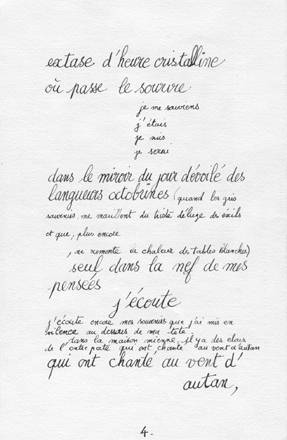 extase d'heure cristalline
où passe le
je me souviens
j'étais
je suis
je serai
dans le miroir du jour dévoilé des
langueurs octobrines (quand les gris
souvenirs me du
et que, plus encore
, se remonte la chaleur des tables blanches)
seul dans la nef de mes
pensées
j'écoute
j'écoute encore mes souvenirs que j'ai mis en
silence au dessus de ma tête.
dans la maison mienne, il y a des clous
de qui ont chanté au vent d'autan
qui ont chanté au vent d'
autan,
4.